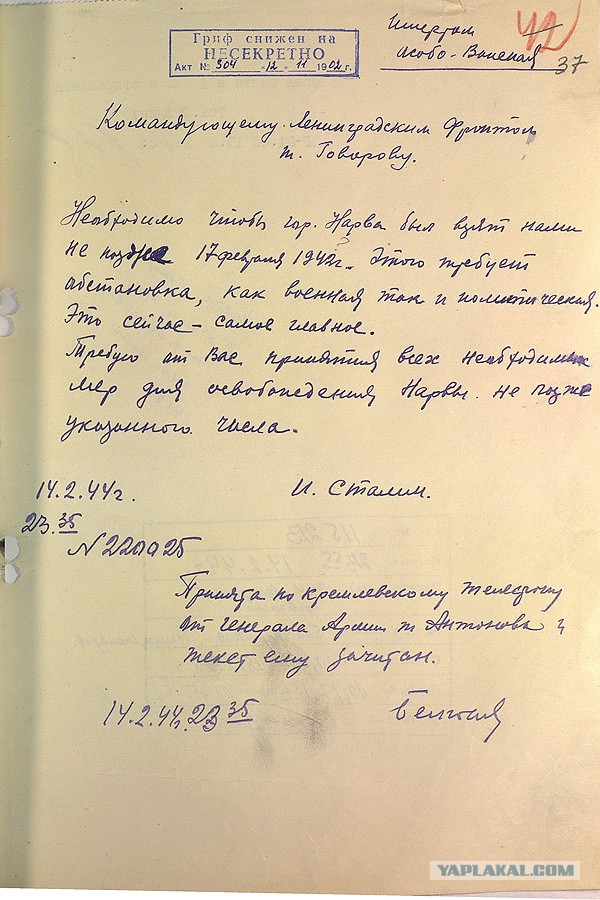 Гриф снижен на
НЕСЕКРЕТНО
Акт № 304 «12» 11 1902 г.
42
особо-Важная
37
Командующему Ленинградским Фронтом
т. Говорову.
Необходимо чтобы гор. Нарва был взят нами
не позднее 17 февраля 1942г. Этого требует
обстановка, как военная так и политическая.
Это сейчас – самое главное.
Требую от Вас принятия всех необходимых
мер для освобождения Нарвы не позже
указанного числа.
14.2.44г. И. Сталин.
23.35
N 220025
Принята по кремлевскому телефону
от генерала Армии т Антонова и
текст ему зачитан.
14.2.44г. 23 35
YAPLAKAL.COM